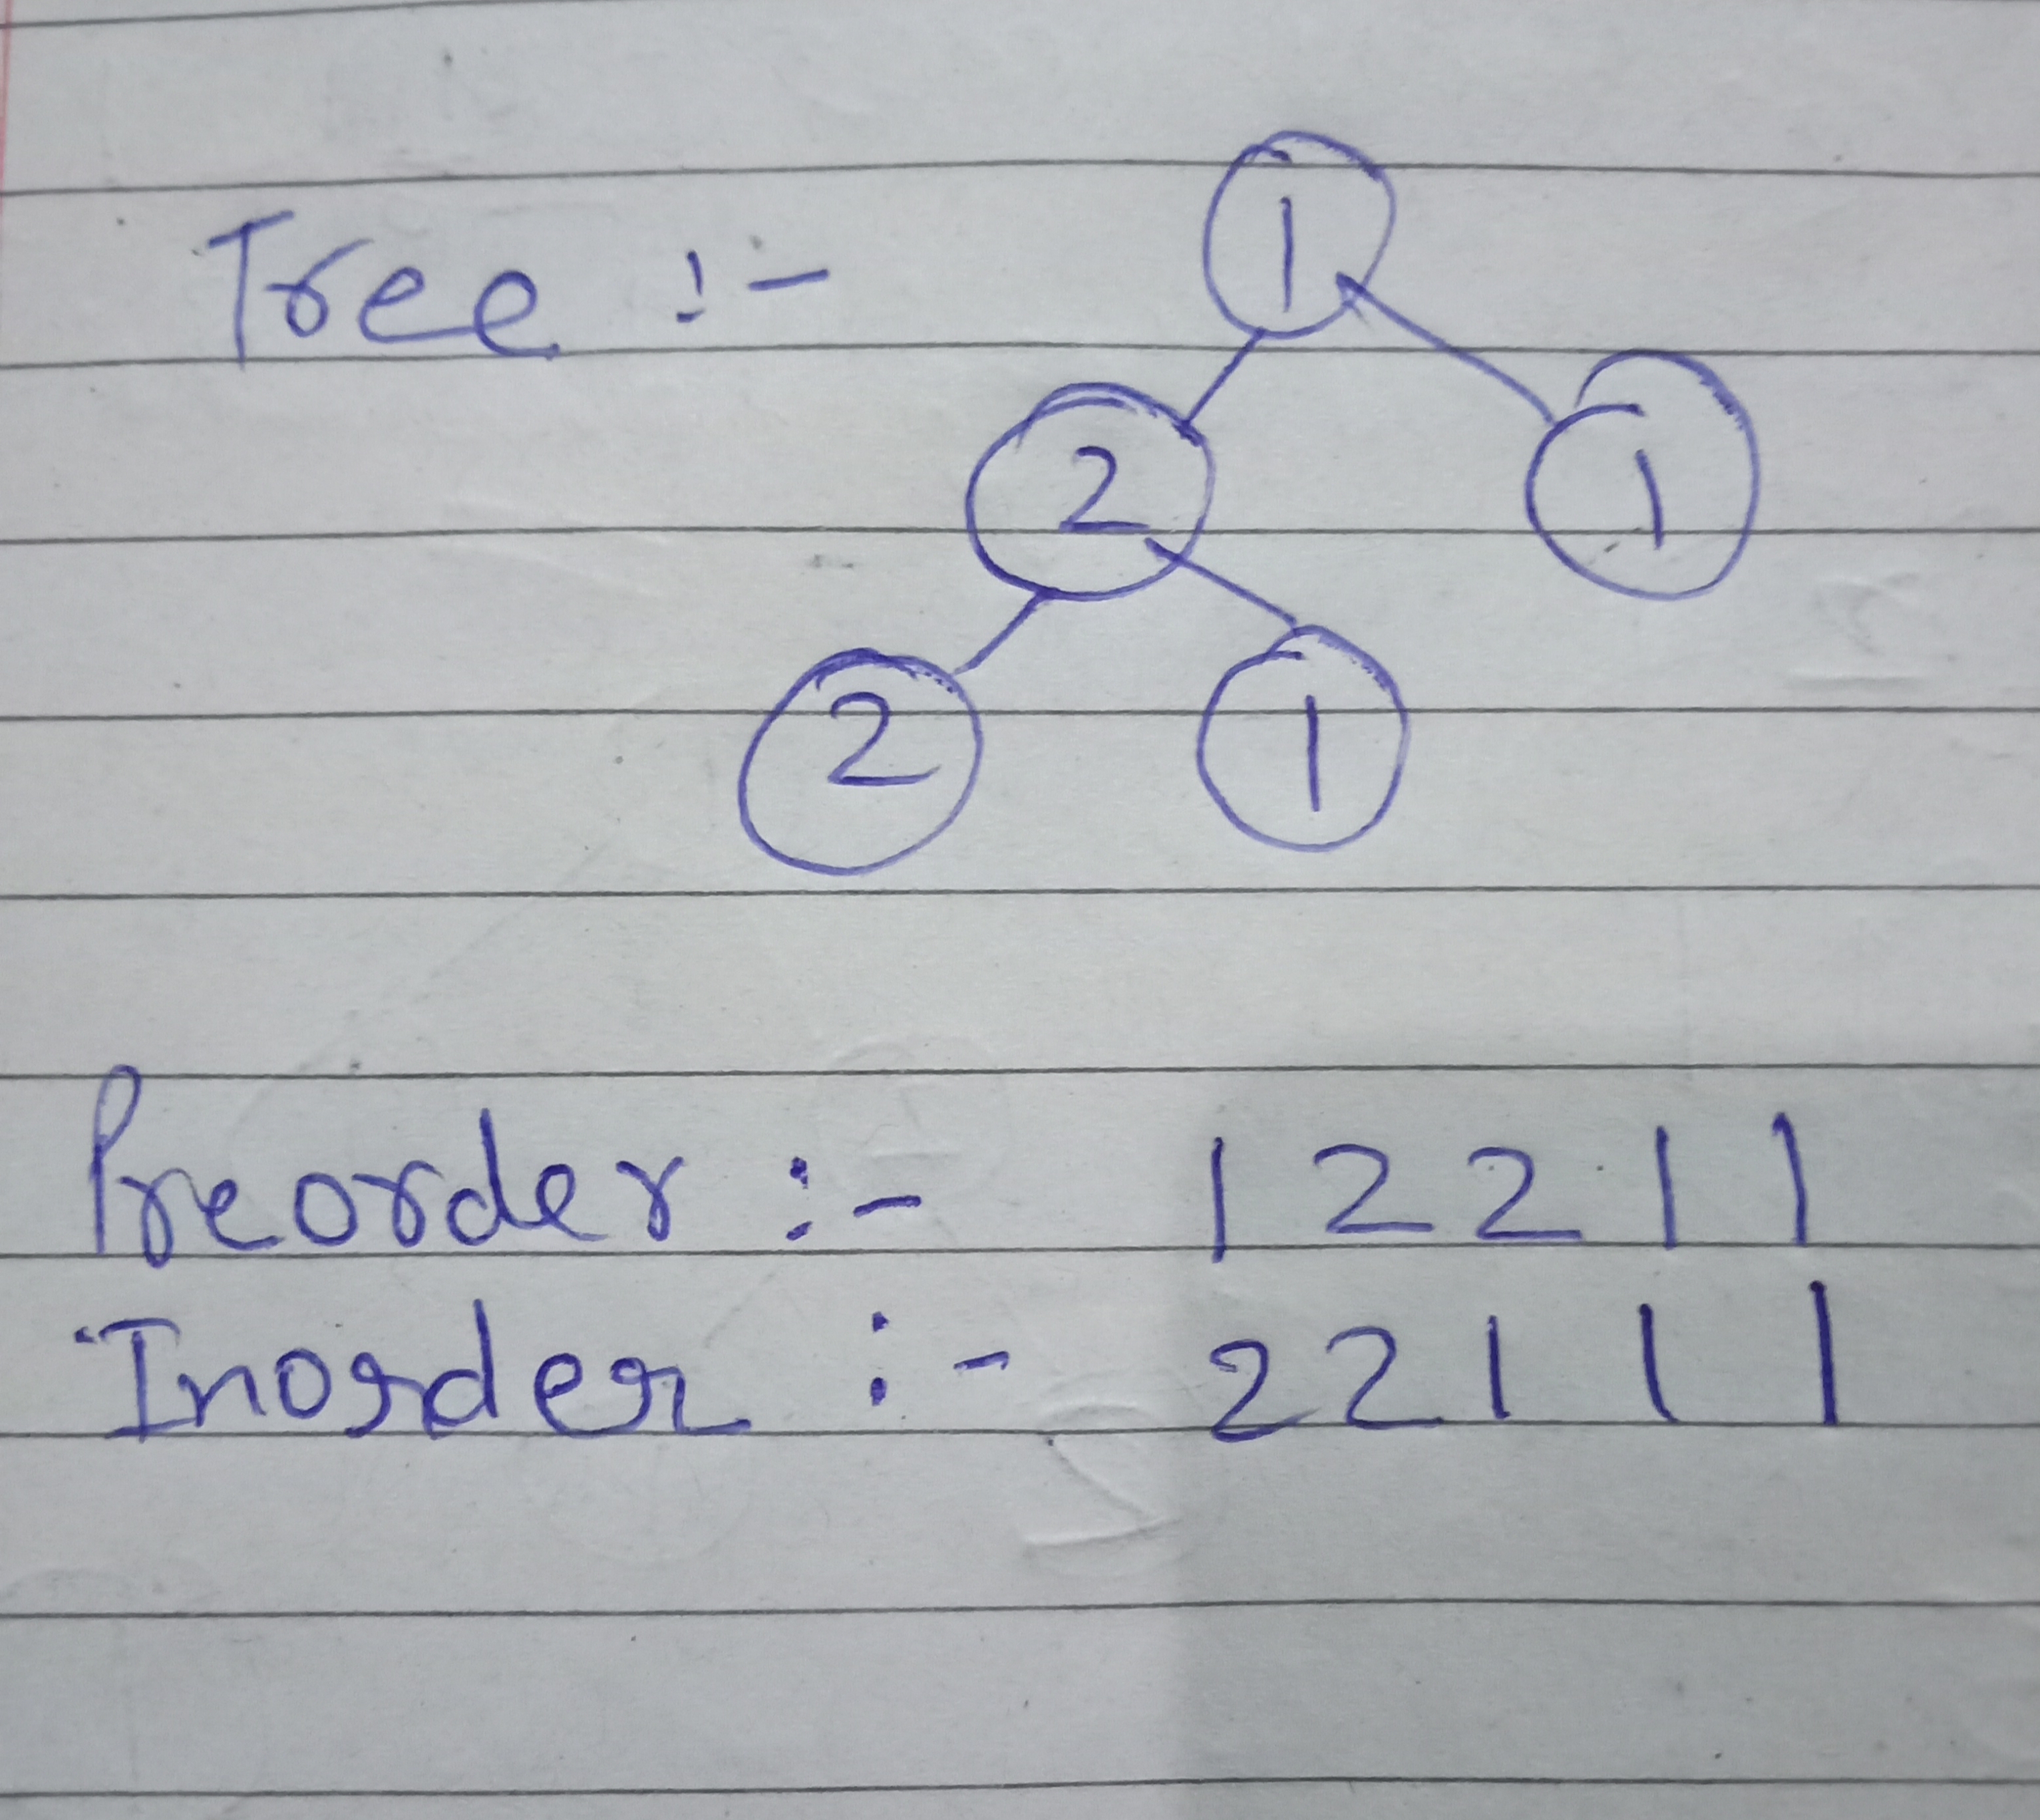 Tree :-
1
2 1
2 1
Preorder :- 1 2 2 1 1
Inorder :- 2 2 1 1 1